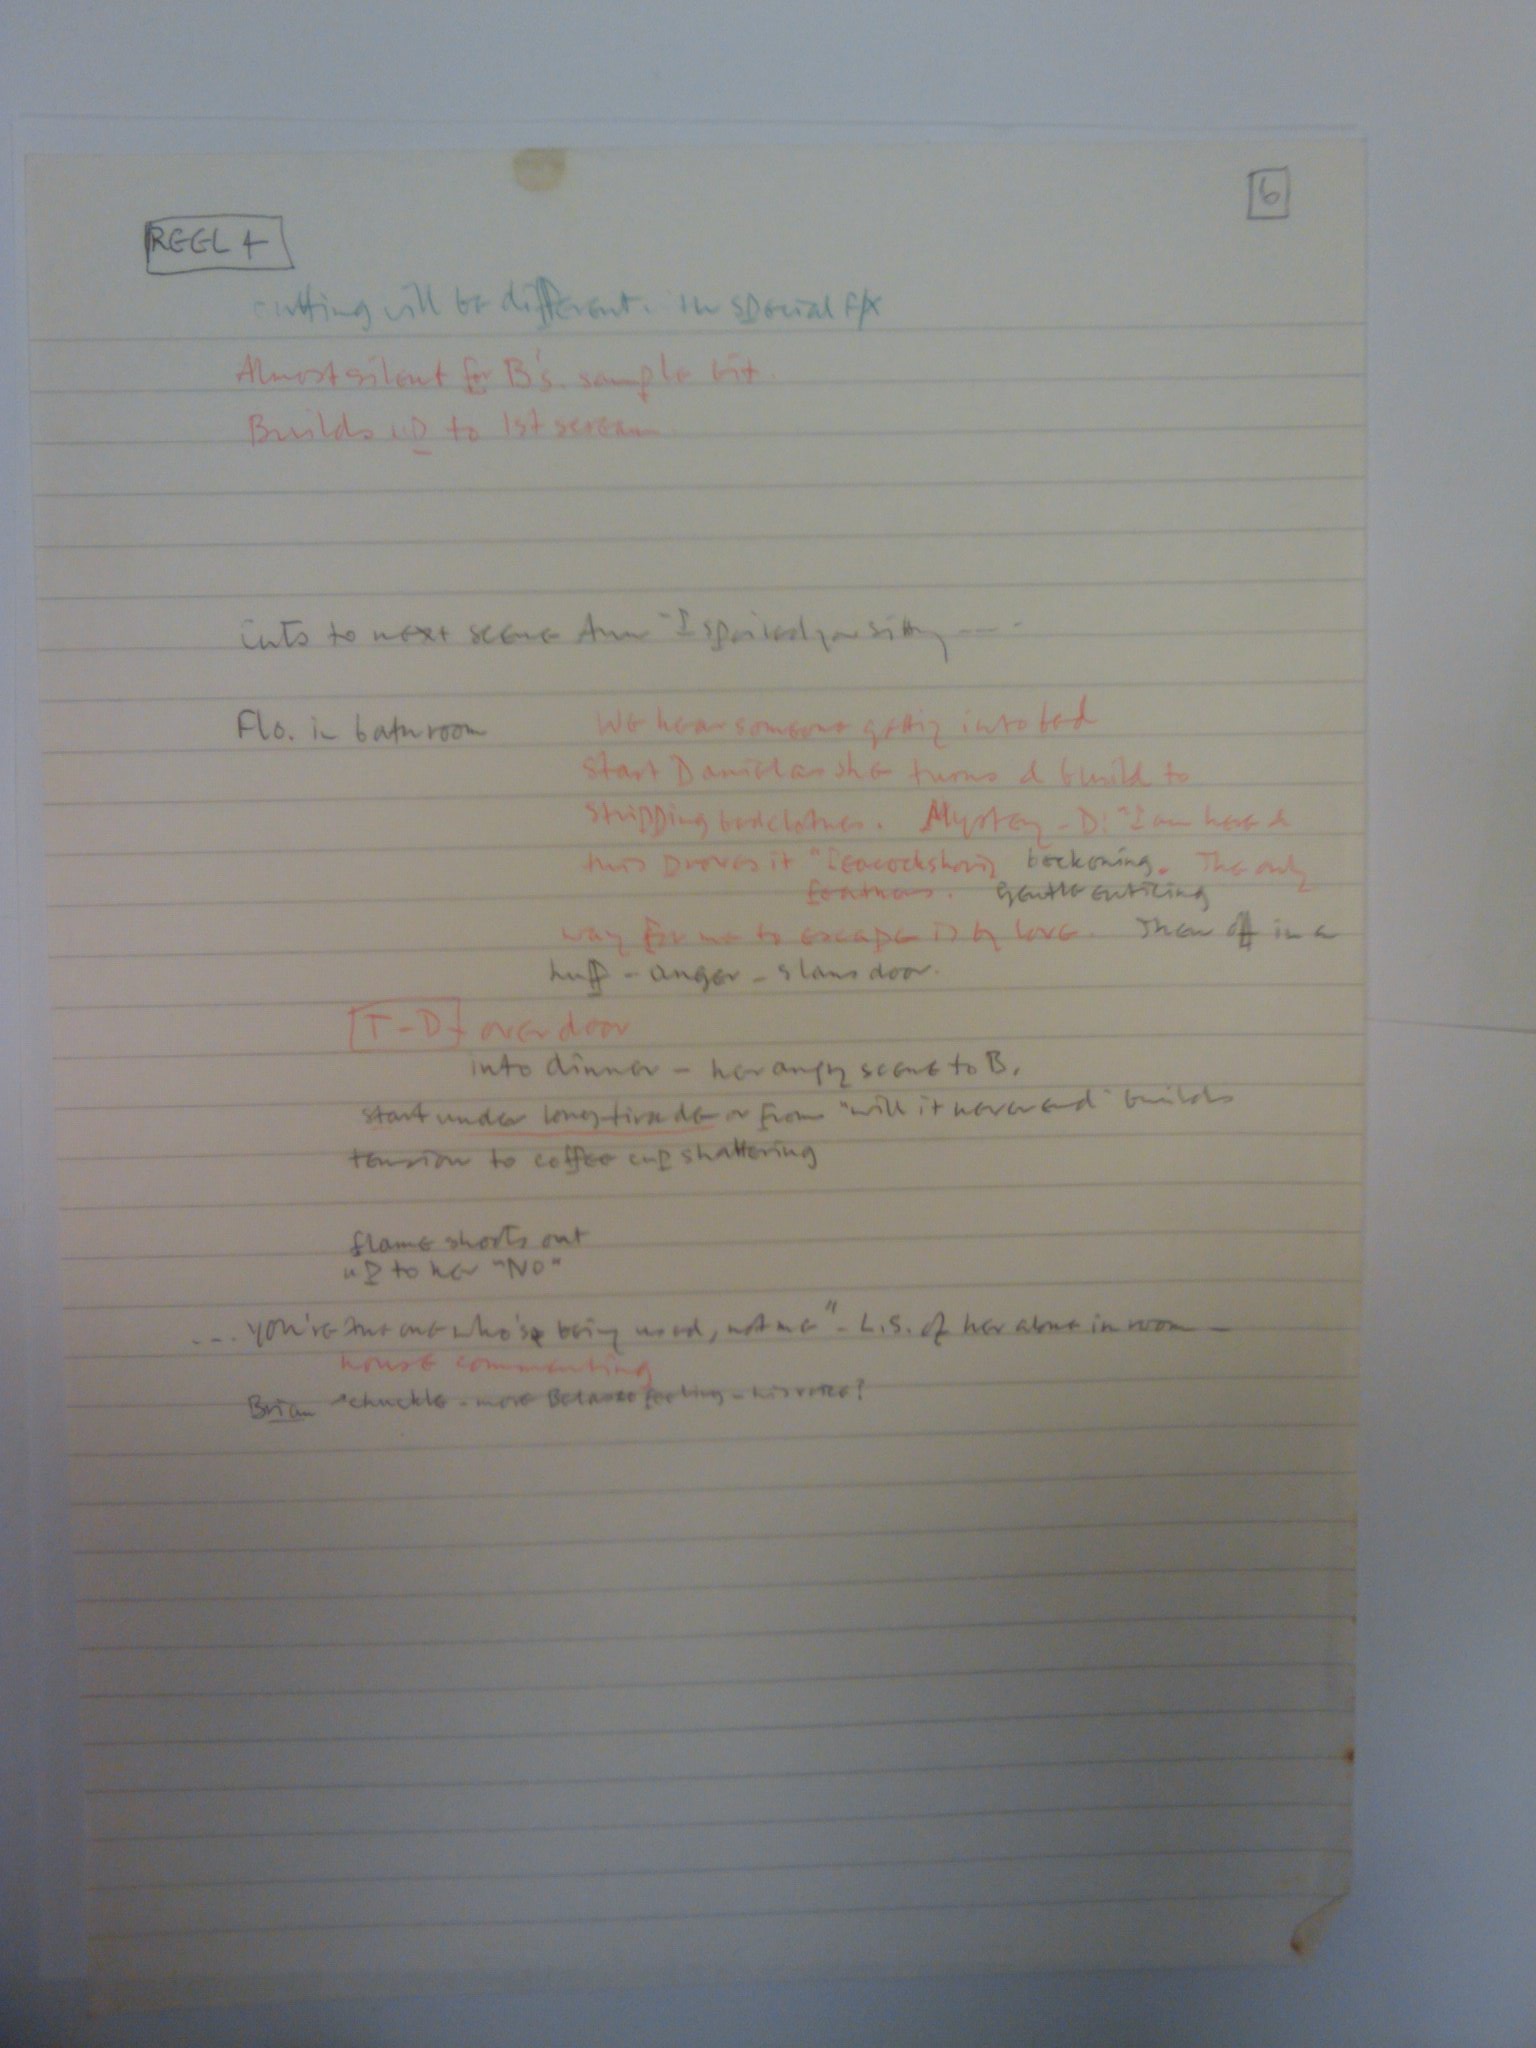 6
REEL 4
cutting will be different. in special F/X
Almost silent for B's. sample bit.
Builds up to 1st scream.
cuts to next scene Ann "I spoiled your sitting ----
Flo. in bathroom We hear someone getting into bed
Start Daniel as she turns & build to
stripping bedclothes. Mystery - D! "I am here &
this proves it" beckoning. The only
feathers. Gentle enticing
way for me to escape is by love. Then off in a
huff - anger - slams door.
T-D over door
into dinner - her angry scene to B.
start under long tirade or from "will it never end" builds
tension to coffee cup shattering
flame shoots out
up to her "NO"
... you're the one who's being used, not me" - L.S. of her alone in room -
house commenting
Brian chuckle - more Belasco feeling - his voice?